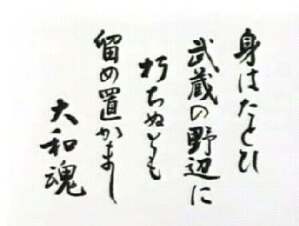 身はたとひ
武蔵の野辺に
朽ちぬとも
留め置かまし
大和魂